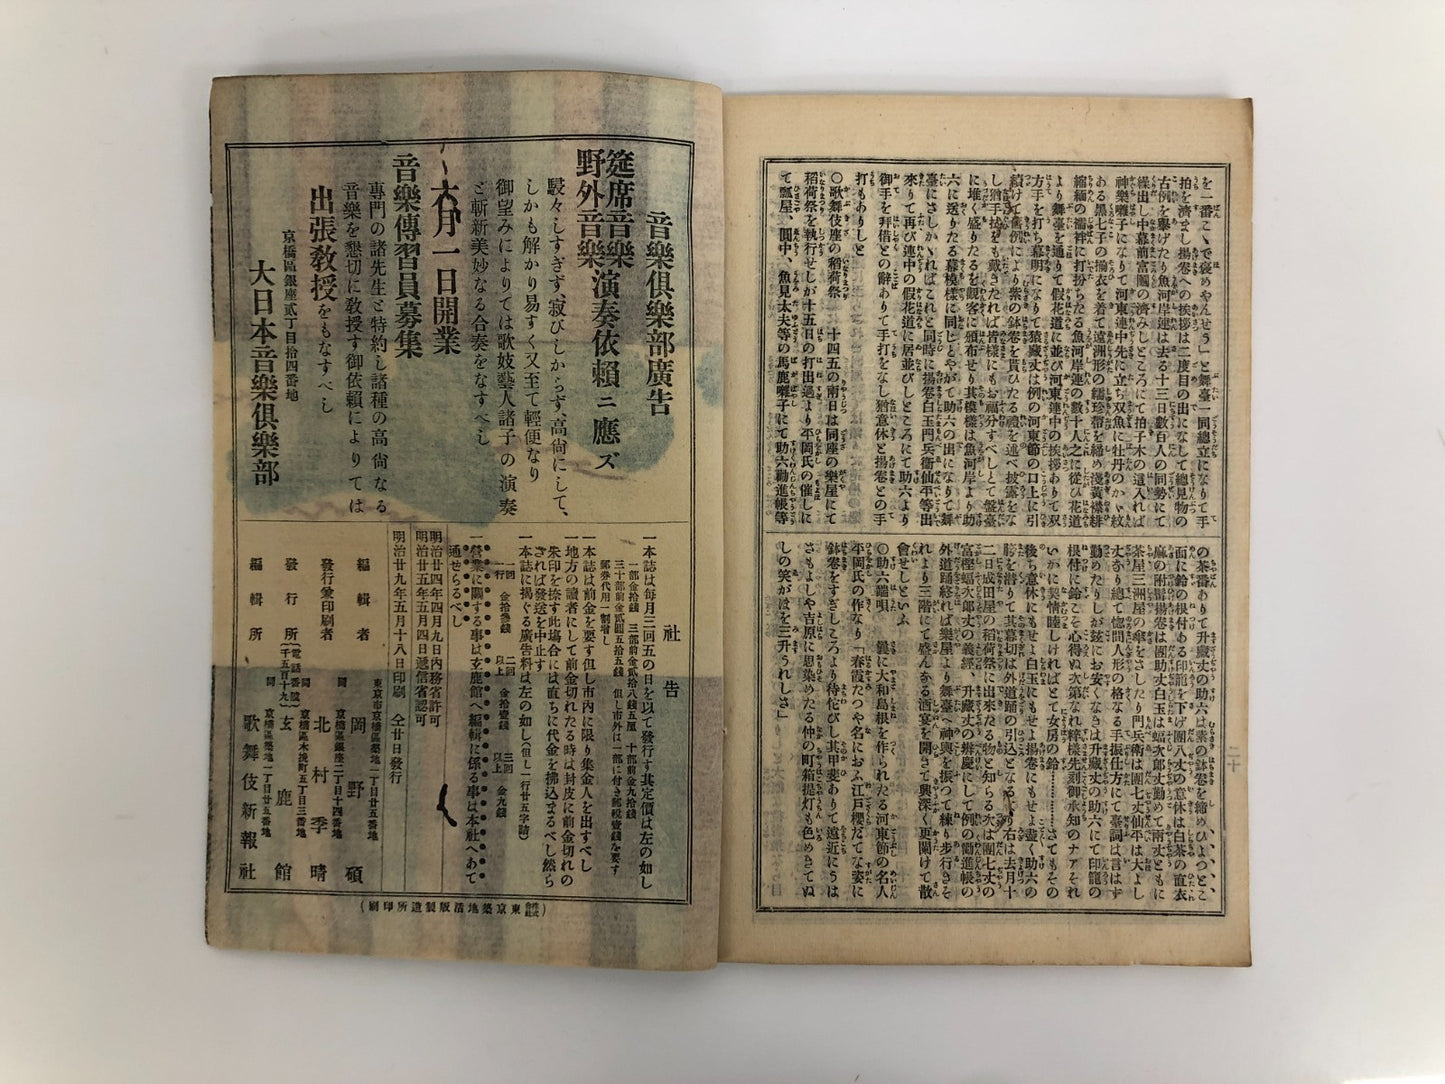 を一番こゝで褒めやんせう」と舞臺一同總立になりて手
拍を濟まし揚卷への挨拶は二度目の出になして總見物の
古例を擧げたり魚河岸連は去る十三日數百人の同勢にて
繰出し中幕前富圖の濟みしところにて拍子木の這入れば
神樂囃子になりて河東連中先に立ち双魚に牡丹のかへ紋
ある黑七子の揃衣を着て遠洲形の繻珍帶を締め淺黃襟緋
縮緬の濡袢に打扮ちたる魚河岸連の數十人之に從ひ花道
より舞臺を通りて假花道に並び河東連中の挨拶ありて双
方手を打ち幕明になりて猿藏丈は例の河東節の口上に引
續けて舊例により紫の鉢卷を貰ひたる禮を述べ披露をな
し猶手拭をも戴きたれば皆樣にもお福分すべしとて盤臺
に堆く盛りたるを觀客に頒布せり其模樣は魚河岸より助
六に送りたる幕模樣に同じとやがて助六の出になりて舞
臺にさしかゝればこれと同時に揚卷白玉門兵衞仙平等出
來りて再び連中の假花道に居並びしところにて助六より
御手を拜借との辭ありて手打をなし猶意休と揚卷との手
打もありしと
〇歌舞伎座の稻荷祭 十四五の兩日は同座の樂屋にて
稻荷祭を執行せしが十五日の打出過より平岡氏の催しに
て瓢屋、圓中、魚見太夫等の馬鹿囃子にて助六勸進帳等
の茶番ありて升藏丈の助六は素の鉢卷を縮めひよつとこ
面に鈴の根付ある印籠を下げ團八丈の意休は白茶の直衣
麻の附髯揚卷は團助丈白玉は蝠次郎丈勤めて兩丈ともに
茶屋三洲屋の傘をさしたり門兵衞は團七丈仙平は大よし
丈寺り總て偬問人形の格なる手振仕方にて臺詞は言はず
勤めたりしが茲にお安くなきは升藏丈の助六にて印籠の
根付に鈴こそ心得ぬ次第なれ粹樣先刻御承知のナアそれ
いかに美情睦しければとて女房の鈴…………さてもその
後ち意休にもせよ白玉にもせよ揚卷にもせよ盡く助六の
胯を潜りて其幕切は外道踊の引込となるより右は去月十
二日成田屋の稻荷祭に出來たる物と知らる次は團七丈の
富樫蝠次郎丈の義經、升藏丈の辨慶にして例の勸進帳の
外道踊終れば樂屋より舞臺へ神輿を振つて練り步行きそ
れより三階にて盛んなる酒宴を開きて興深く更闌けて散
會せしといふ
〇助六雜唄 曩に大和島根を作られたる河東節の名人
平岡氏の作なり「春霞たつや名におふ江戶櫻だてな姿に
鉢卷をすぎしころより待佗びし其甲斐ありて遠近にうは
さもよしや吉原に思染めたる仲の町箱提灯も色めきてぬ
しの笑がほを三升うれしさ」
二十
音樂俱樂部廣告
筵席音樂
野外音樂
演奏依賴ニ應ズ
騷々しすぎず、寂びしからず、高尙にして、
しかも解かり易すく又至て輕便なり
御望みによりては歌妓藝人諸子の演奏
と斬新美妙なる合奏をなすべし
六月一日開業
音樂傳習員募集
專門の諸先生と特約し諸種の高尙なる
音樂を懇切に敎授す御依賴によりては
出張敎授をもなすべし
京橋區銀座貳丁目拾四番地
大日本音樂俱樂部
社告
一本誌は每月三回五の日を以て發行す其定價は左の如し
一部金拾錢 三部前金貳拾八錢五厘 十部前金九拾錢
三十部前金貳圓五拾五錢 但し市外は一部に付き郵稅壹錢を要す
郵券代用一割增し
一本誌は前金を要す但し市內に限り集金人を出すべし
一地方の讀者にして前金切れたる時は封皮に前金切れの
朱印を捺す此塲合には直ちに代金を拂込まるべし然ら
ざれば發送を中止す
一本誌に揭ぐる廣告料は左の如し(但し一行廿五字詰)
一回 一行 金拾參錢 二回以上 金拾壹錢 三回以上 金九錢
一營業に關する事は玄鹿館へ編輯に係る事は本社へあて
通せらるべし
明治廿四年四月九日內務省許可
明治廿五年五月四日遞信省認可
明治廿九年五月十八日印刷 仝廿日發行
編輯者 東京市京橋區築地一丁目廿五番地 岡野碩
發行兼印刷者 同 京橋區銀座二丁目十四番地 北村季晴
發行所 (電話番號千五百十九) 同 京橋區木挽町五丁目三番地 玄鹿館
編輯所 同 京橋區築地一丁目廿五番地 歌舞伎新報社
(會社株式東京築地活版製造所印刷)